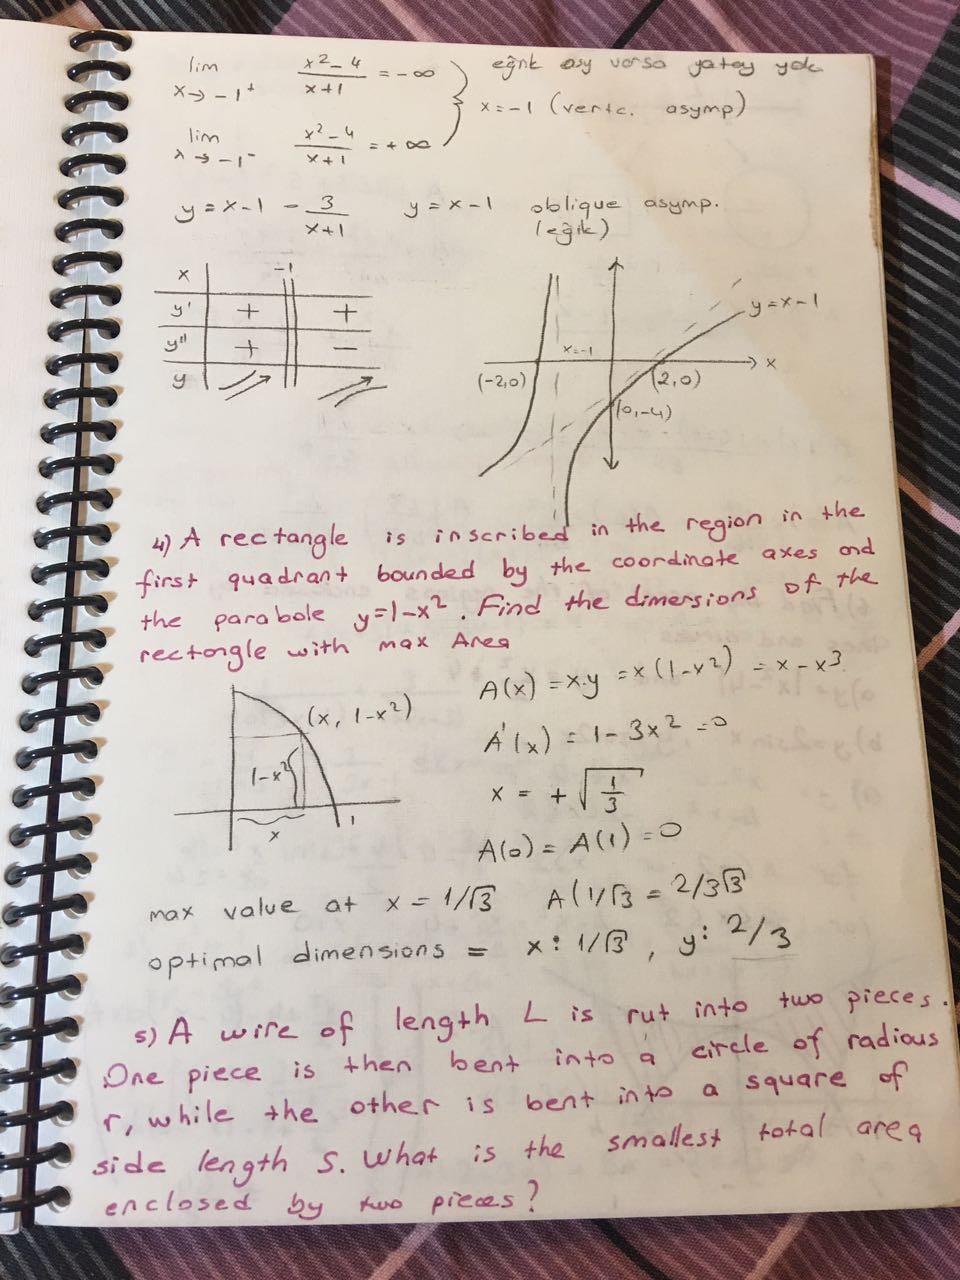 lim x→-1⁺ (x²-4)/(x+1) = -∞
eğik asy varsa yatay yok
x=-1 (vertc. asymp)
lim x→-1⁻ (x²-4)/(x+1) = +∞
y = x-1 - 3/(x+1)   y = x-1   oblique asymp.
(eğik)
x -1
y' + +
y" + -
y
y=x-1
x=-1
x
(-2,0)
(2,0)
(0,-4)
4) A rectangle is inscribed in the region in the
first quadrant bounded by the coordinate axes and
the parabole y=1-x². Find the dimensions of the
rectongle with max Area
A(x) = x.y = x(1-x²) = x-x³
(x, 1-x²)
A'(x) = 1-3x² = 0
1-x²
x = +√(1/3)
x
1
A(0) = A(1) = 0
max value at x = 1/√3   A(1/√3 = 2/3√3
optimal dimensions = x: 1/√3, y: 2/3
5) A wire of length L is rut into two pieces.
One piece is then bent into a circle of radious
r, while the other is bent into a square of
side length S. What is the smallest total area
enclosed by two pieces?